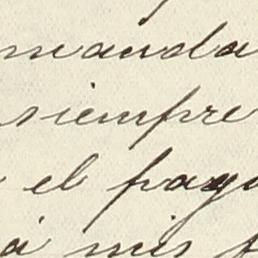 manda
siempre
el pago
á mis